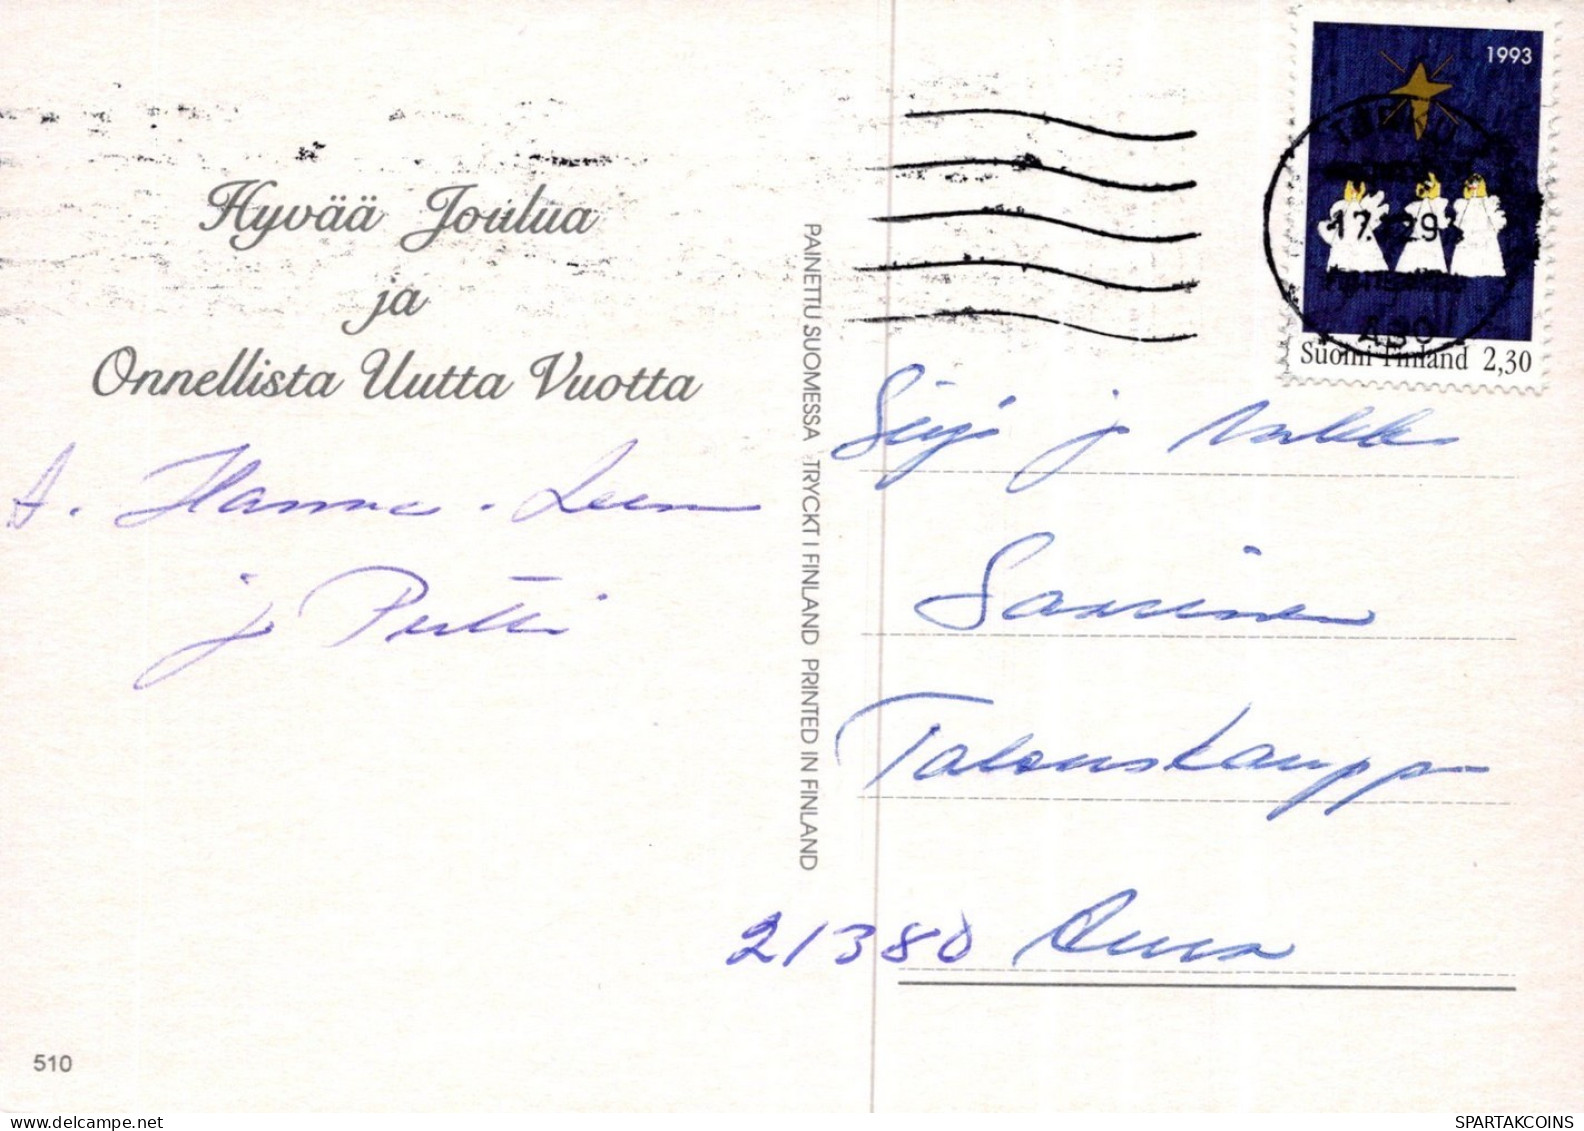 1993
TURKU
17.12.93
Suomi Finland 2,30
Hyvää Joulua
ja
Onnellista Uutta Vuotta
T. Hanna-Leena
ja Pertti
PAINETTU SUOMESSA TRYCKT I FINLAND PRINTED IN FINLAND
ja
Saarinen
Talouskauppa
21380 Aura
510
SPARTAKCOINS.COM